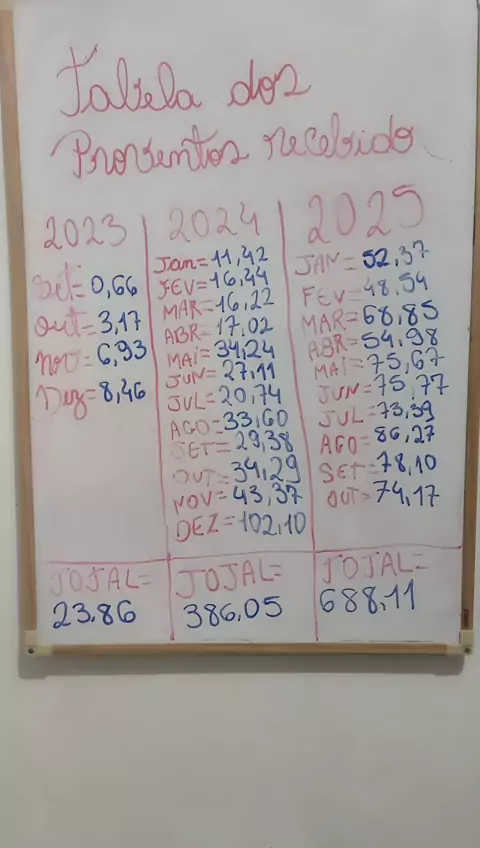 Tabela dos
Proventos recebido
2023
Set=0,66
Out=3,17
Nov=6,93
Dez=8,46
TOTAL=
23.86
2024
Jan=11,42
FEV=16,44
MAR=16,22
ABR=17,02
MAI=34,24
JUN=27,11
JUL=20,74
AGO=33,60
SET=29,38
OUT=34,29
NOV=43,37
DEZ=102,10
TOTAL=
386,05
2025
JAN=52,37
FEV=48,54
MAR=68,85
ABR=54,98
MAI=75,67
JUN=75,77
JUL=73,39
AGO=86,27
SET=78,10
OUT=74,17
TOTAL=
688,11